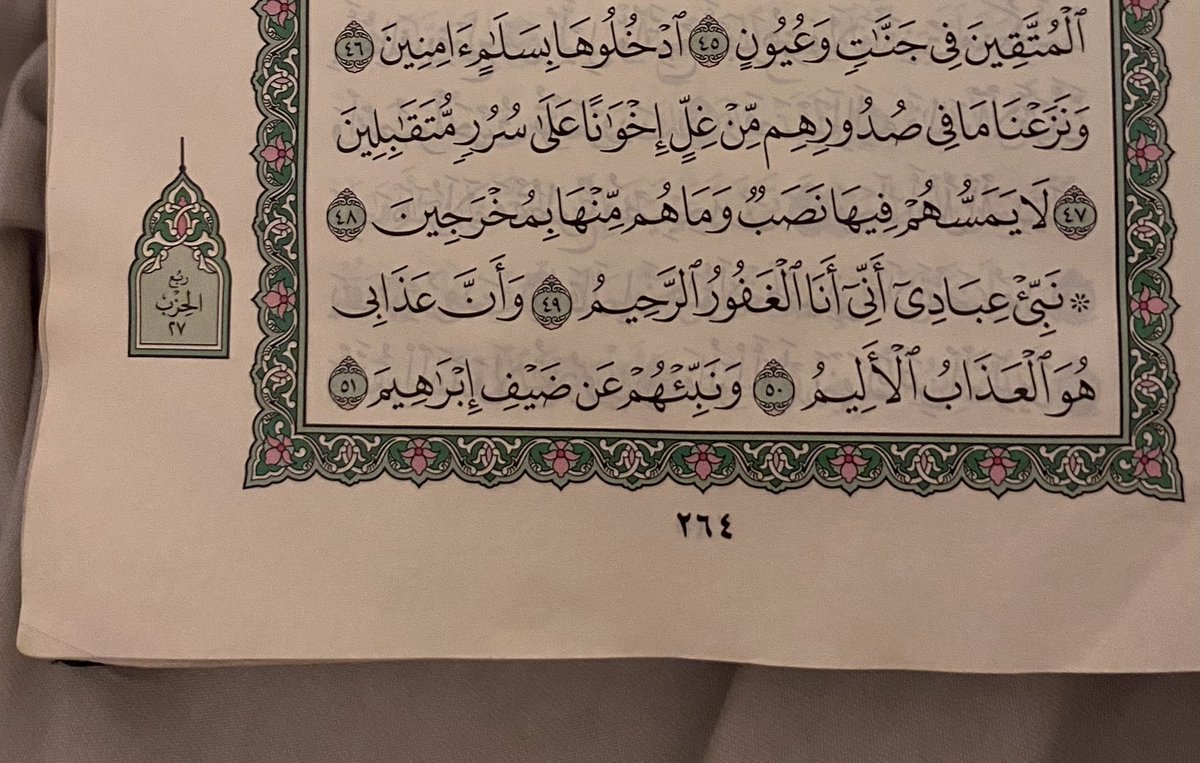 ٱلْمُتَّقِينَ فِى جَنَّٰتٍ وَعُيُونٍ ٤٥ ٱدْخُلُوهَا بِسَلَٰمٍ ءَامِنِينَ ٤٦
وَنَزَعْنَا مَا فِى صُدُورِهِم مِّنْ غِلٍّ إِخْوَٰنًا عَلَىٰ سُرُرٍ مُّتَقَٰبِلِينَ
٤٧ لَا يَمَسُّهُمْ فِيهَا نَصَبٌ وَمَا هُم مِّنْهَا بِمُخْرَجِينَ ٤٨
۞ نَبِّئْ عِبَادِىٓ أَنِّىٓ أَنَا ٱلْغَفُورُ ٱلرَّحِيمُ ٤٩ وَأَنَّ عَذَابِى
هُوَ ٱلْعَذَابُ ٱلْأَلِيمُ ٥٠ وَنَبِّئْهُمْ عَن ضَيْفِ إِبْرَٰهِيمَ ٥١
رُبْع
الحِزْبِ
٢٧
٢٦٤